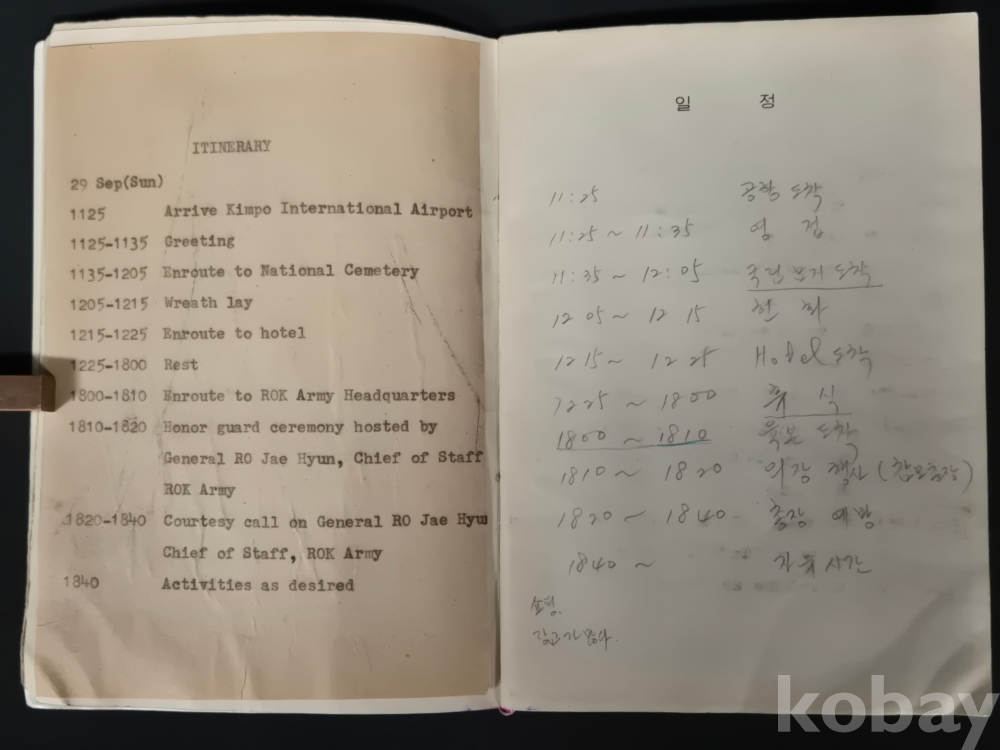 ITINERARY
29 Sep(Sun)
1125 Arrive Kimpo International Airport
1125-1135 Greeting
1135-1205 Enroute to National Cemetery
1205-1215 Wreath lay
1215-1225 Enroute to hotel
1225-1800 Rest
1800-1810 Enroute to ROK Army Headquarters
1810-1820 Honor guard ceremony hosted by
General RO Jae Hyun, Chief of Staff
ROK Army
1820-1840 Courtesy call on General RO Jae Hyu
Chief of Staff, ROK Army
1840 Activities as desired
일 정
11:25 공항 도착
11:25 ~ 11:35 영 접
11:35 ~ 12:05 국립묘지 도착
12 05 ~ 12 15 헌 화
1215 ~ 12 25 Hotel 도착
1225 ~ 1800 휴 식
1800 ~ 1810 육본 도착
1810 ~ 1820 의장 행사 (참모총장)
1820 ~ 1840 총장 예방
1840 ~ 자유시간
쇼핑.
kobay